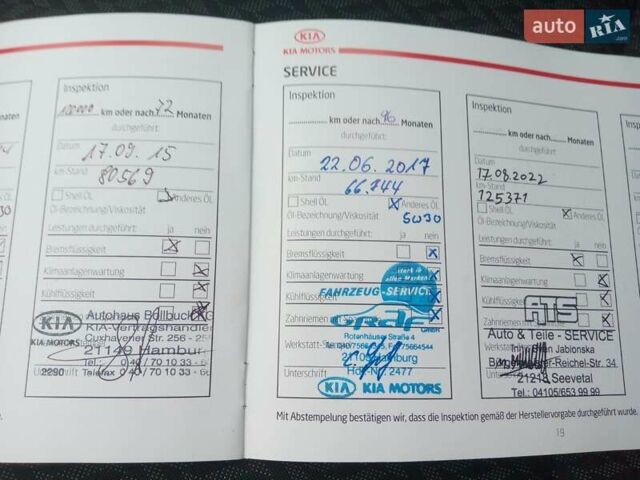 auto RIA .com
KIA
KIA MOTORS
Inspektion
100000 km oder nach 72 Monaten
durchgeführt:
Datum
17.09.15
km-Stand
80569
Shell Öl
Anderes Öl
Öl-Bezeichnung/Viskosität
Leistungen durchgeführt: ja nein
Bremsflüssigkeit
Klimaanlagenwartung
Kühlflüssigkeit
KIA
KIA MOTORS
KIA-Vertragshändler
Cuxhavener Str. 256 -
21149 Hamburg
0 40 / 70 10 33 -
2290 Telefax 0 40 / 70 10 33 -
SERVICE
Inspektion
km oder nach 96 Monaten
durchgeführt:
Datum
22.06.2017
km-Stand
66.744
Shell Öl
Anderes Öl
Öl-Bezeichnung/Viskosität
5W30
Leistungen durchgeführt: ja nein
Bremsflüssigkeit
Klimaanlagenwartung
stark in allen Marken!
Kühlflüssigkeit
FAHRZEUG-SERVICE
Zahnriemen
GmbH
Rotenhäuser Straße 4
Werkstatt-
21109 Hamburg
Unterschrift
2477
KIA KIA MOTORS
Inspektion
km oder nach Monaten
durchgeführt:
Datum
17.08.2022
km-Stand
125371
Shell Öl
Anderes Öl
Öl-Bezeichnung/Viskosität
Leistungen durchgeführt: ja nein
Bremsflüssigkeit
Klimaanlagenwartung
Kühlflüssigkeit
ATS
Zahnriemen
Auto & Teile - SERVICE
Jablonska
-Reichel-Str. 34
21218 Seevetal
Tel.: 04105/653 99 99
Mit Abstempelung bestätigen wir, dass die Inspektion gemäß der Herstellervorgabe durchgeführt wurde.
19